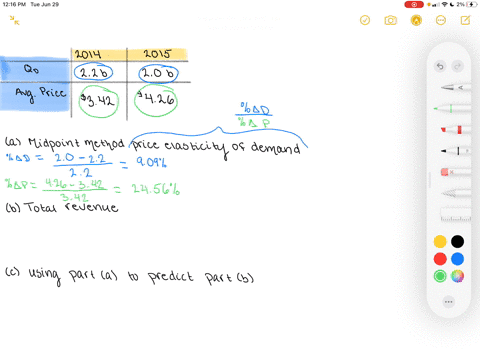 12:16 PM Tue Jun 29
2%
2014 2015
QD 2.2b 2.0b
Avg. Price $3.42 $4.26
%ΔD
%ΔP
(a) Midpoint method price elasticity of demand
%ΔD = 2.0 - 2.2 / 2.2 = 9.09%
%ΔP = 4.26 - 3.42 / 3.42 = 24.56%
(b) Total revenue
(c) using part (a) to predict part (b)